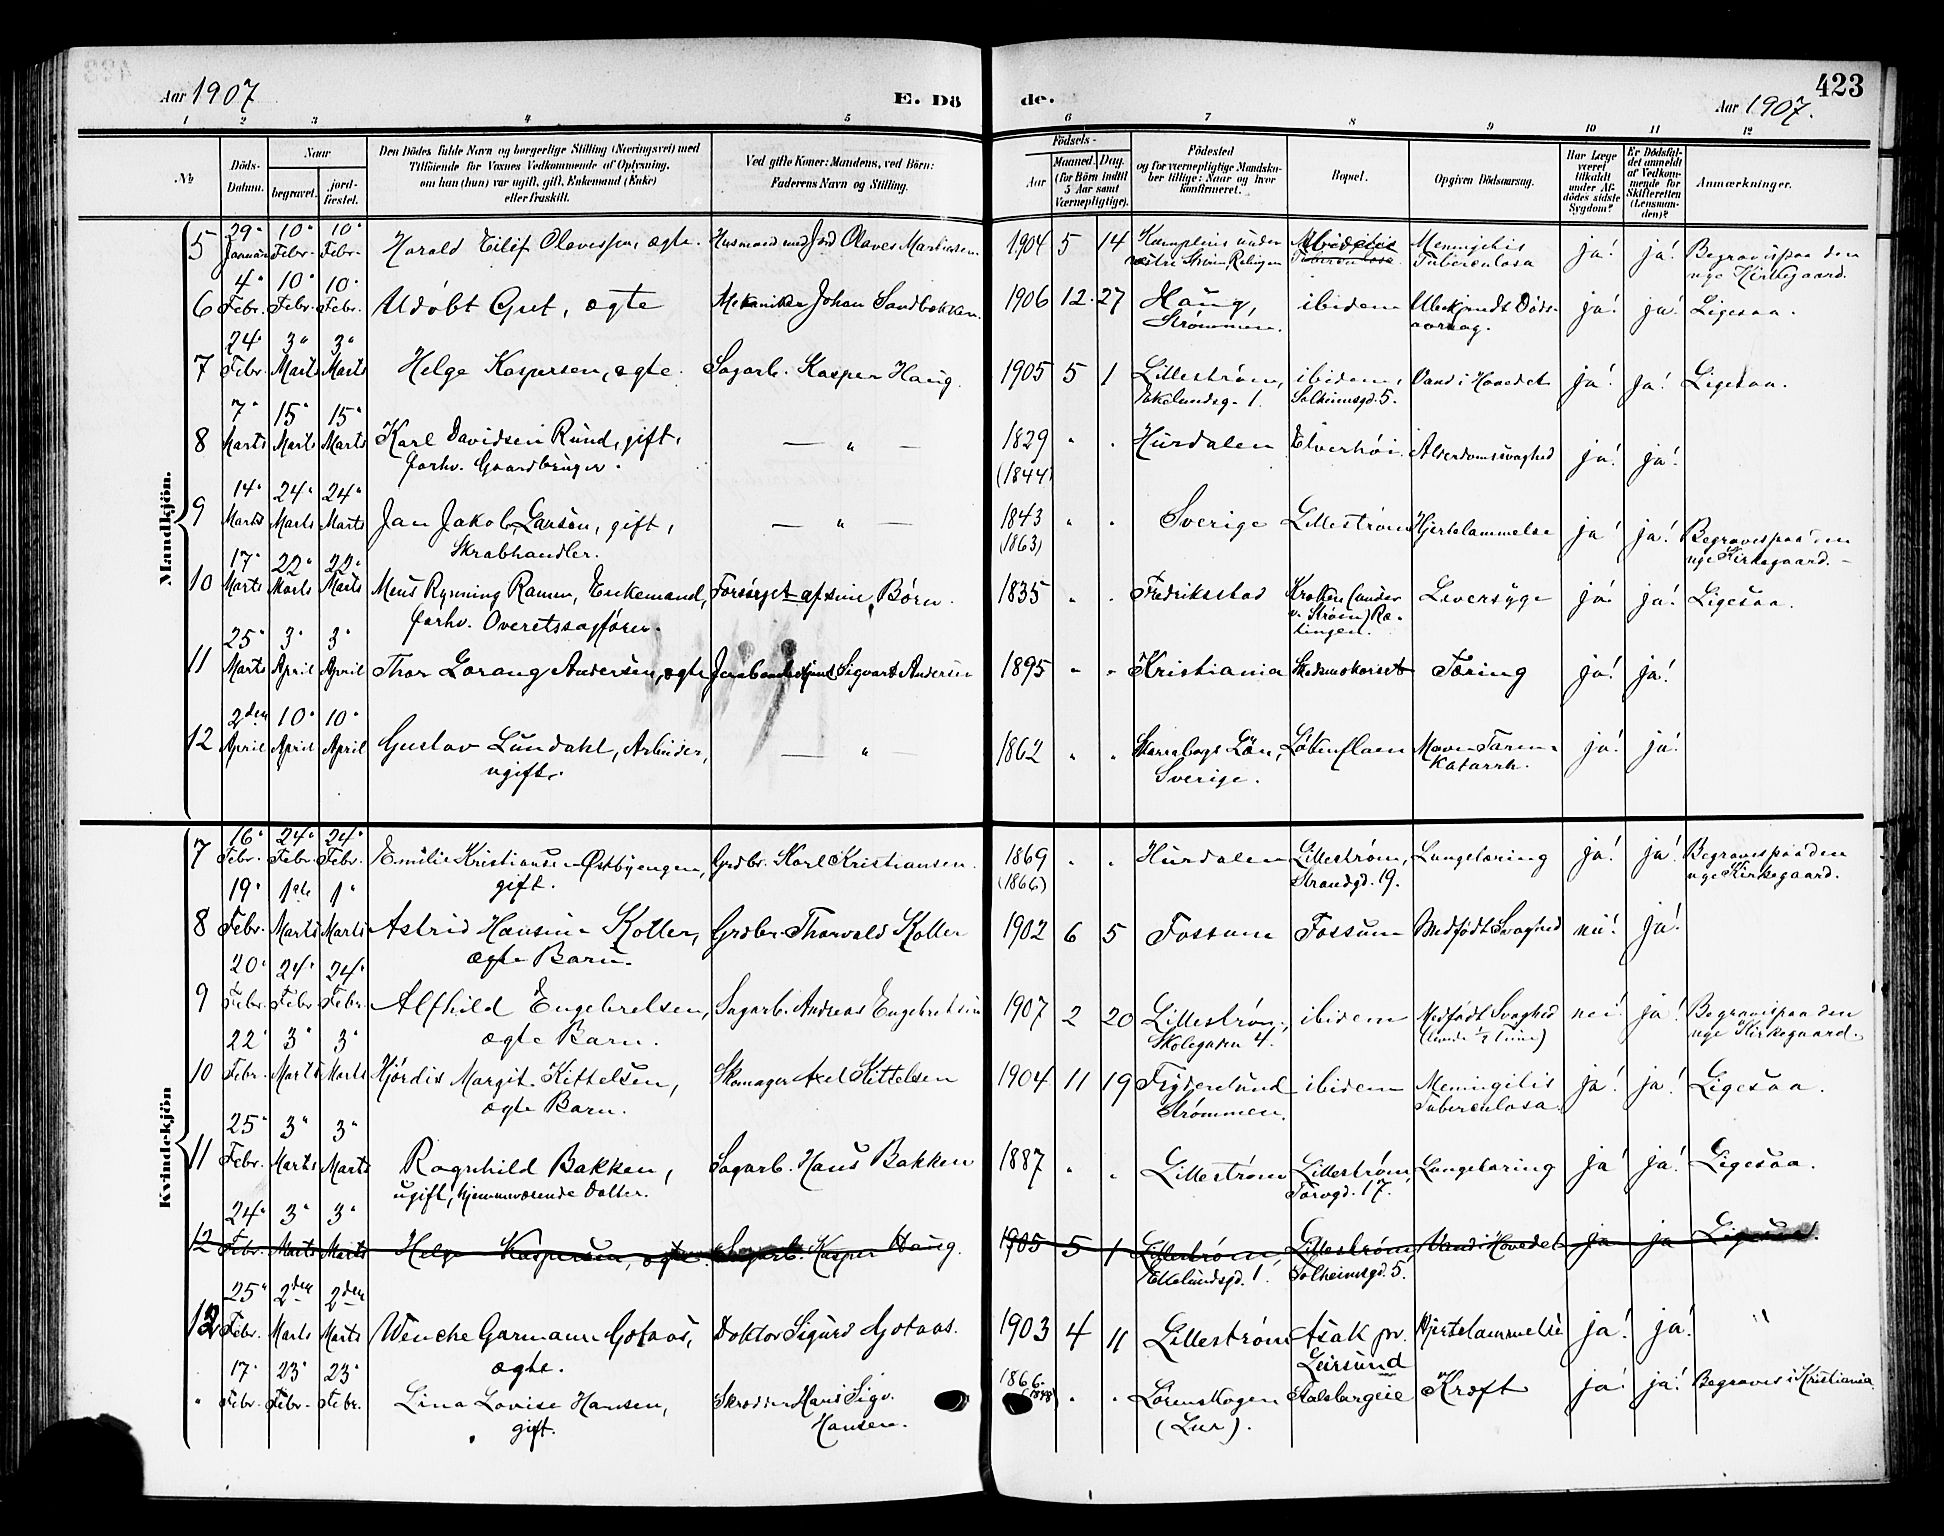 423
Aar 1907 E. Dö de. Aar 1907.
1 2 3 4 5 6 7 8 9 10 11 12
No. Döds-Datum. Naar begravet. jord-fæstet. Den Dödes fulde Navn og borgerlige Stilling (Næringsvei) med Tilföiende for Voxnes Vedkommende af Oplysning, om han (hun) var ugift, gift, Enkemand (Enke) eller fraskilt. Ved gifte Koner: Mandens, ved Börn: Faderens Navn og Stilling. Födsels- Aar Maaned. Dag. (for Börn indtil 5 Aar samt Værnepligtige). Födested og for værnepligtige Mandskaber tillige: Naar og hvor konfirmeret. Bopæl. Opgiven Dödsaarsag. Har Læge været tilkaldt under Afdödes sidste Sygdom? Er Dödsfaldet anmeldt af Vedkommende for Skifteretten (Lensmanden)? Anmærkninger.
Mandkjön.
5 29. Januar 10. Febr. 10. Febr. Harald Eilif Olavessen, ægte. Husmand med Jord Olaves Martinsen 1904 5 14 under østre Strøm, Rælingen ibidem Meningitis Tuberculosa ja! ja! Begraves paa den nye Kirkegaard.
6 4. Febr. 10. Febr. 10. Febr. Udöbt Gut, ægte Mekaniker Johan Sandbækken. 1906 12. 27 Haug, Strømmen. ibidem Ubekjendt Dødsaarsag. ja! ja! Ligesaa.
7 24. Febr. 3. Marts 3. Marts Helge Kaspersen, ægte. Sagarb. Kasper Haug. 1905 5 1 Lillestrøm, Eikelundsg. 1. ibidem, Solheimsgd. 5. Vand i Hovedet ja! ja! Ligesaa.
8 7. Marts 15. Marts 15. Marts Karl Davidsen Rund, gift, forhv. Gaardbruger. — " — 1829 (1844) " " Hurdalen Elverhöi. Alderdomssvaghed ja! ja!
9 14. Marts 24. Marts 24. Marts Jan Jakob Larsen, gift, Skrabhandler. — " — 1843 (1863) " " Sverige Lillestrøm Hjertelammelse ja! ja! Begraves paa den nye Kirkegaard. —
10 17. Marts 22. Marts 22. Marts Mens Rynning Ramm, Enkemand, forhv. Overetssagfører. Forsørget af sine Børn. 1835 " " Fredriksstad Kroken (under v. Strøm) Rælingen. Leversyge ja! ja! Ligesaa.
11 25. Marts 3. April 3. April Thor Lorang Andersen, ægte Jernbanebetjent Sigvart Andersen 1895 " " Kristiania Skedsmokorset Tæring ja! ja!
12 2den April 10. April 10. April Gustav Lundahl, Arbeider, ugift. — " — 1862 " " Skaraborgs Län, Sverige. Løkenflaen Mave-Tarmkatarrh. ja! ja!
Kvindekjön
7 16. Febr. 24. Febr. 24. Febr. Emilie Kristiansen Østbyengen, gift. Grdbr. Karl Kristiansen. 1869 (1866) " " Hurdalen Lillestrøm, Strandgd. 19. Lungetæring ja! ja! Begraves paa den nye Kirkegaard.
8 19. Febr. 1ste Marts 1. Marts Astrid Hansine Koller, ægte Barn. Grdbr. Thorvald Koller 1902 6 5 Fossum Fossum Medfødt Svaghed nei! ja!
9 20. Febr. 24. Febr. 24. Febr. Alfhild Engebretsen, ægte Barn. Sagarb. Andreas Engebretsen 1907 2 20 Lillestrøm, Skolegaden 4. ibidem Medfødt Svaghed (levede 1/2 Time) nei! ja! Begraves paa den nye Kirkegaard.
10 22. Febr. 3. Marts 3. Marts Hjördis Margit Kittelsen, ægte Barn. Skomager Axel Kittelsen 1904 11 19 Frydenlund Strømmen. ibidem Meningitis Tuberculosa. ja! ja! Ligesaa.
11 25. Febr. 3. Marts 3. Marts Ragnhild Bakken, ugift, hjemmeværende Datter. Sagarb. Hans Bakken 1887 " " Lillestrøm Lillestrøm, Torvgd. 17. Lungetæring ja! ja! Ligesaa.
12 24. Febr. 3. Marts 3. Marts Helge Kaspersen, ægte. Sagarb. Kasper Haug. 1905 5 1 Lillestrøm Eikelundsgd. 1. Lillestrøm, Solheimsgd. 5. Vand i Hovedet ja ja Ligesaa.
12 25. Febr. 2den Marts 2den Marts Wenche Garmann Gotaas, ægte. Doktor Sigurd Gotaas. 1903 4 11 Lillestrøm Asak pr. Leirsund Hjertelammelse ja! ja! "
" 17. Febr. 23. Febr. 23. Febr. Lina Lovise Hansen, gift. Skrædder Hans Sigv. Hansen. 1866. " " Lørenskogen (Lur). Stalsbergeie Kræft ja! ja! Begraves i Kristiania